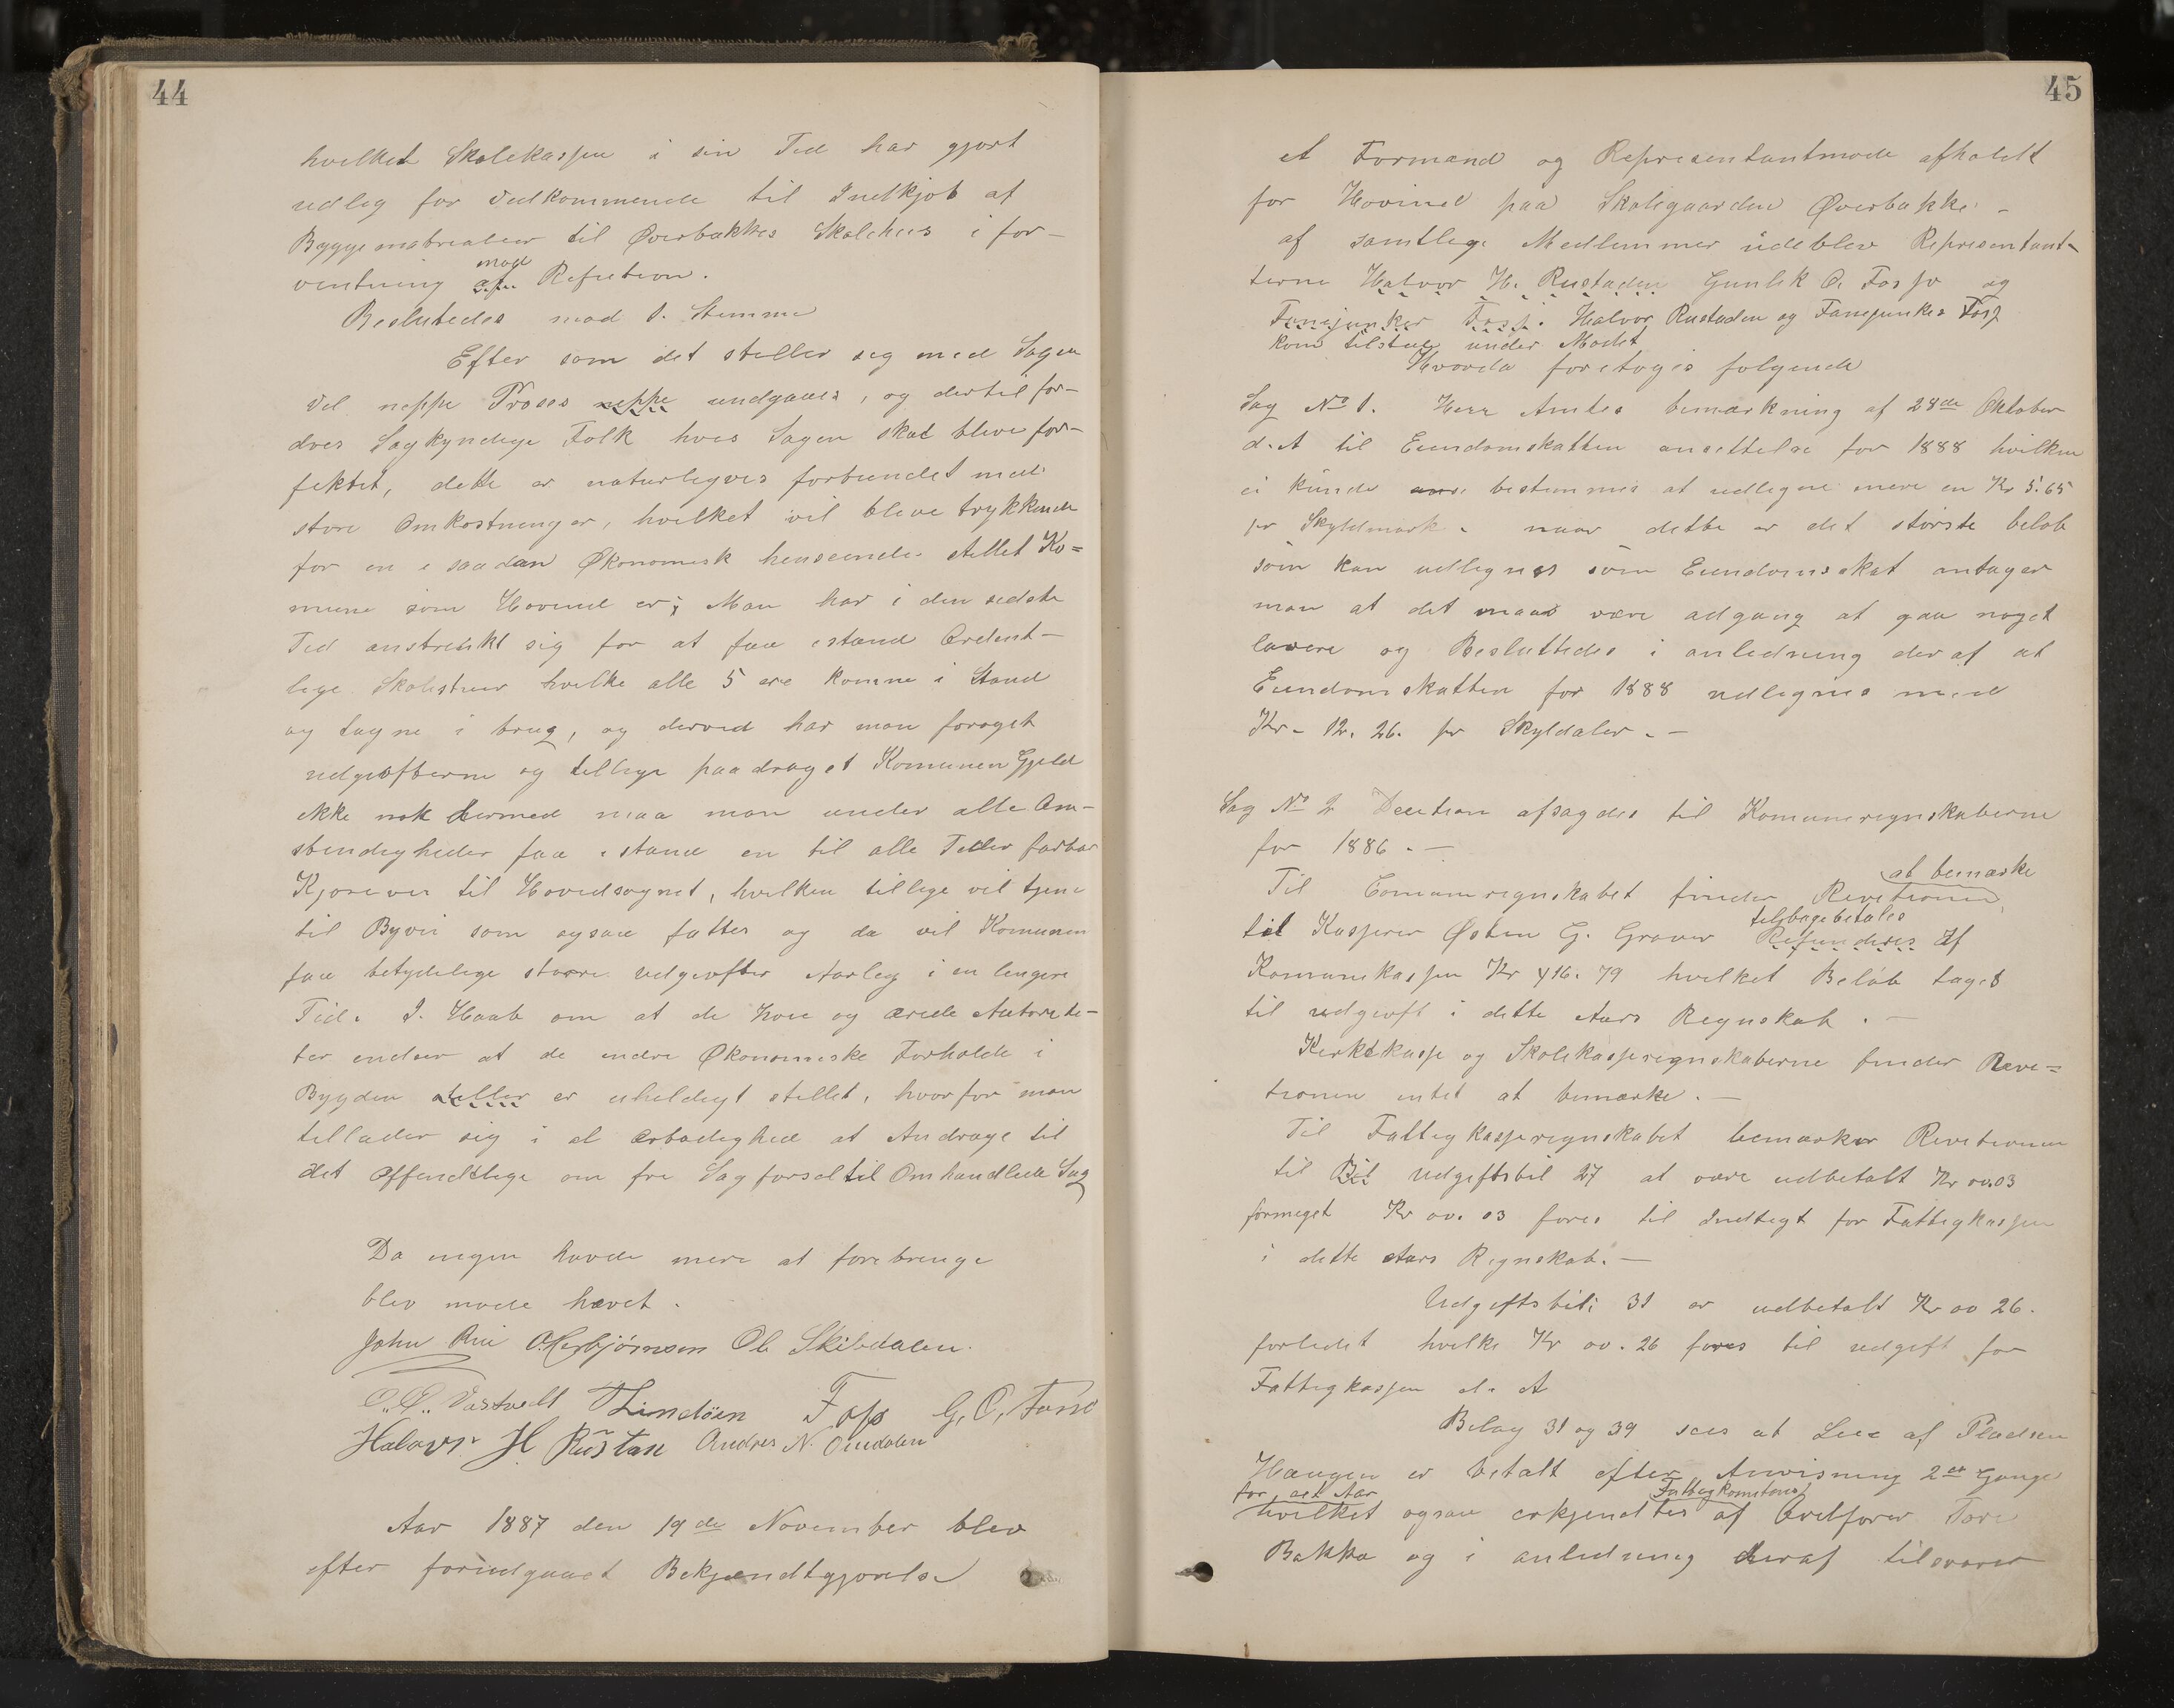 44
hvilket Skolekassen i sin Tid har gjort
udleg for vedkommende til Indkjøb af
Byggematrealier til Øverbækkes Skolehus i for-
ventning af mod Refution.
Besluttedes mod 1. Stemme
Efter som det stiller sig med Sagen
vel neppe Proses neppe undgaaes, og dertil for-
dres Sagkyndige Folk hvis Sagen skal blive for-
fektet, dette er naturligvis forbundet med
store Omkostninger, hvilket vil blive trykkende
for en i saadan Økonomisk henseende stillet Ko=
mune som Hovind er; Man har i den sidste
Tid anstrenkt sig for at faa istand Ordent-
lige Skolestuer hvilke alle 5 ere komne i Stand
og tagne i brug, og derved har man forøget
udgivfterne og tillige paadraget Komunen Gjeld
ikke nok dermed maa man under alle Om-
stendigheder faa istand en til alle Tider farbar
Kjørevei til Hovedsognet, hvilken tillige vil tjene
til Byvei som ogsaa fattes og da vil Komunen
faa betydelige større udgivfter Aarleg i en lengere
Tid. I Haab om at de høie og ærede Autorite-
ter indser at de indre Økonomiske Forholde i
Bygden stiller er uheldigt stillet, hvorfor man
tillader sig i al Ærbødighed at Andrage til
det Offendtlige om fri Sagførsel til Omhandlede Sag
Da ingen havde mere at forebringe
blev møde hævet.
John Rui O. Herbjørnsen Ole Skibdalen.
O. O. Vastvedt T Lindöen Foss G. O. Fosso
Halavr H Rustan Andres N. Omdalen
Aar 1887 den 19de November blev
efter forudgaaet Bekjendtgjørelse
45
et Formand og Representantmøde afholdt
for Hovind paa Skolegaarden Øverbække -
af samtlige Medlemmer udeblev Representant-
terne Halvor H. Rustaden Gunlek O. Fosso og
Fanejunker Foss. Halvor Rustaden og Fanejunker Foss
kom tilstede under Mødet
Hvorda foretoges følgende
Sag No 1. Herr Amtes bemærkning af 28de Oktober
d. A til Eiendomskatten ansettelse for 1888 hvilken
ei kunde bestemmes at udlegne mere en Kr 5.65
pr Skyldmark. naar dette er det störste beløb
som kan udlegnes som Eiendomsskat antager
man at det maa være adgang at gaa noget
lavere og Besluttedes i anledning deraf at
Eiendomskatten for 1888 udlegnes med
Kr - 12. 26. pr Skyldaler. -
Sag No 2 Decition afsagdes til Komuneregnskaberne
for 1886. -
Til Comuneregnskabet finder Revitionen at bemærke
til Kasserer Østen G. Graver Refunderes tilbagebetales af
Komunekassen Kr 416. 79 hvilket Beløb taget
til udgivft i dette Aars Regnskab. -
Kirkekasse og Skolekasseregnskaberne finder Revi=
tionen intet at bemærke. -
Til Fattigkasseregnskabet bemærker Revitionen
til Bil udgiftsbil 27 at være udbetalt Kr 00.03
formeget Kr 00. 03 føres til Indtegt for Fattigkassen
i dette Aars Regnskab. -
Udgiftsbil: 31 er udbetalt Kr 00 26.
forledet hvilke Kr 00. 26 føres til udgift for
Fattigkassen d. A
Belag 31 og 39 sees at Leie af Pladsen
Haugen er betalt efter Anvisning 2de Gange
for et Aar Fattigkomitens
hvilket ogsaa erkjendtes af Ordfører Tore
Bakka og i anledning deraf tilsvarer